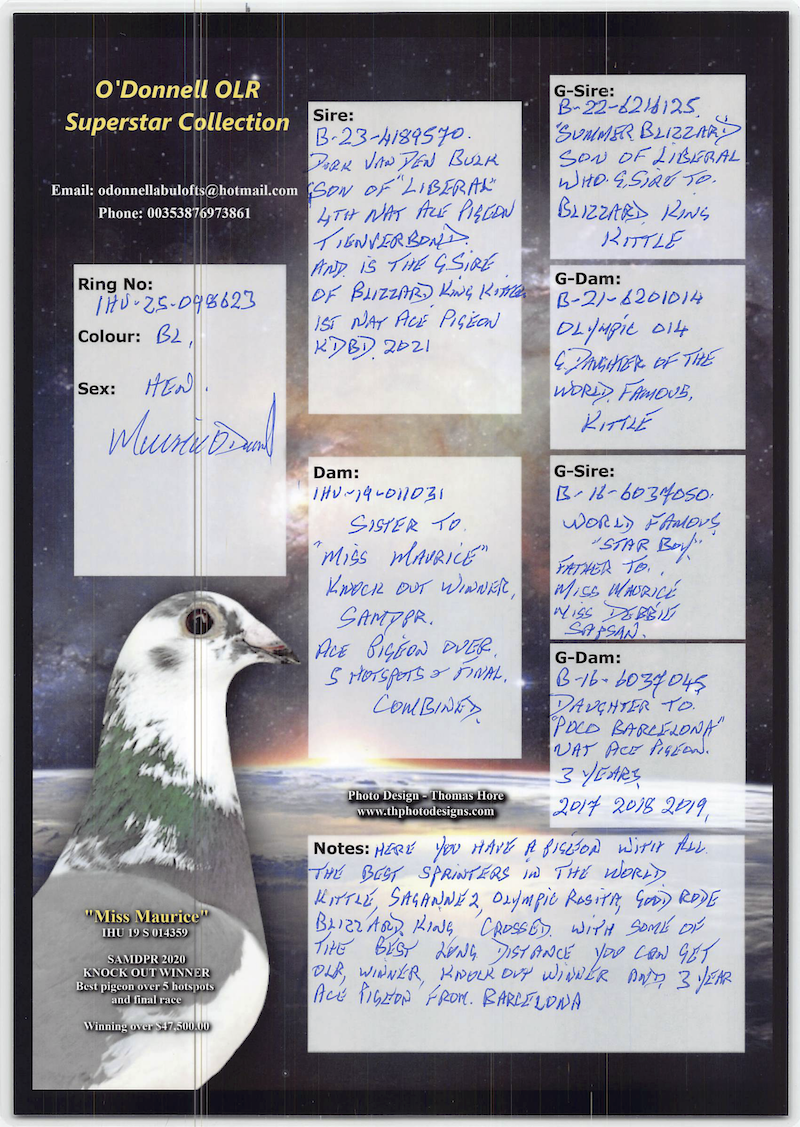 O'Donnell OLR
Superstar Collection
Email: odonnellabulofts@hotmail.com
Phone: 00353876973861
Ring No:
IHU-25-098623
Colour: BL,
Sex: HEN.
Sire:
B-23-4189570.
DIRK VAN DEN BULK
SON OF "LIBERAL"
4TH NAT ACE PIGEON
TIENVERBOND.
AND IS THE G.SIRE
OF BLIZZARD KING KITTLE
1ST NAT ACE PIGEON
KDBD 2021
Dam:
IHU-19-011031
SISTER TO.
"MISS MAURICE"
KNOCK OUT WINNER,
SAMDPR.
ACE PIGEON OVER.
5 HOTSPOTS & FINAL.
COMBINED
G-Sire:
B-22-6216125.
"SUMMER BLIZZARD
SON OF LIBERAL
WHO G.SIRE TO.
BLIZZARD KING
KITTLE
G-Dam:
B-21-6201014
OLYMPIC 014
G.DAUGHTER OF THE
WORLD FAMOUS,
KITTLE
G-Sire:
B-16-6037050.
WORLD FAMOUS
"STAR BOY"
FATHER TO.
MISS MAURICE
MISS DEBBIE
SAPSAN.
G-Dam:
B-16-6037045
DAUGHTER TO.
"POCO BARCELONA"
NAT ACE PIGEON.
3 YEARS
2017 2018 2019,
Photo Design - Thomas Hore
www.thphotodesigns.com
Notes: HERE YOU HAVE A PIGEON WITH ALL.
THE BEST SPRINTERS IN THE WORLD
KITTLE, SAGANNE2, OLYMPIC ROSITA, GOOD RODE
BLIZZARD KING, CROSSED WITH SOME OF
THE BEST LONG DISTANCE YOU CAN GET
OLR, WINNER, KNOCK OUT WINNER AND 3 YEAR
ACE PIGEON FROM. BARCELONA
"Miss Maurice"
IHU 19 S 014359
SAMDPR 2020
KNOCK OUT WINNER
Best pigeon over 5 hotspots
and final race
Winning over $47,500.00